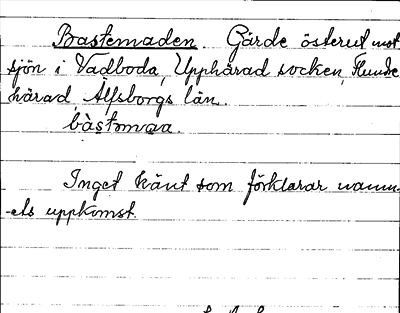 Bastemaden. Gärde österut mot
sjön i Vadboda, Upphärad socken, Flundre
härad, Älfsborgs län.
bàstomaa.
Inget känt som förklarar namn-
ets uppkomst.